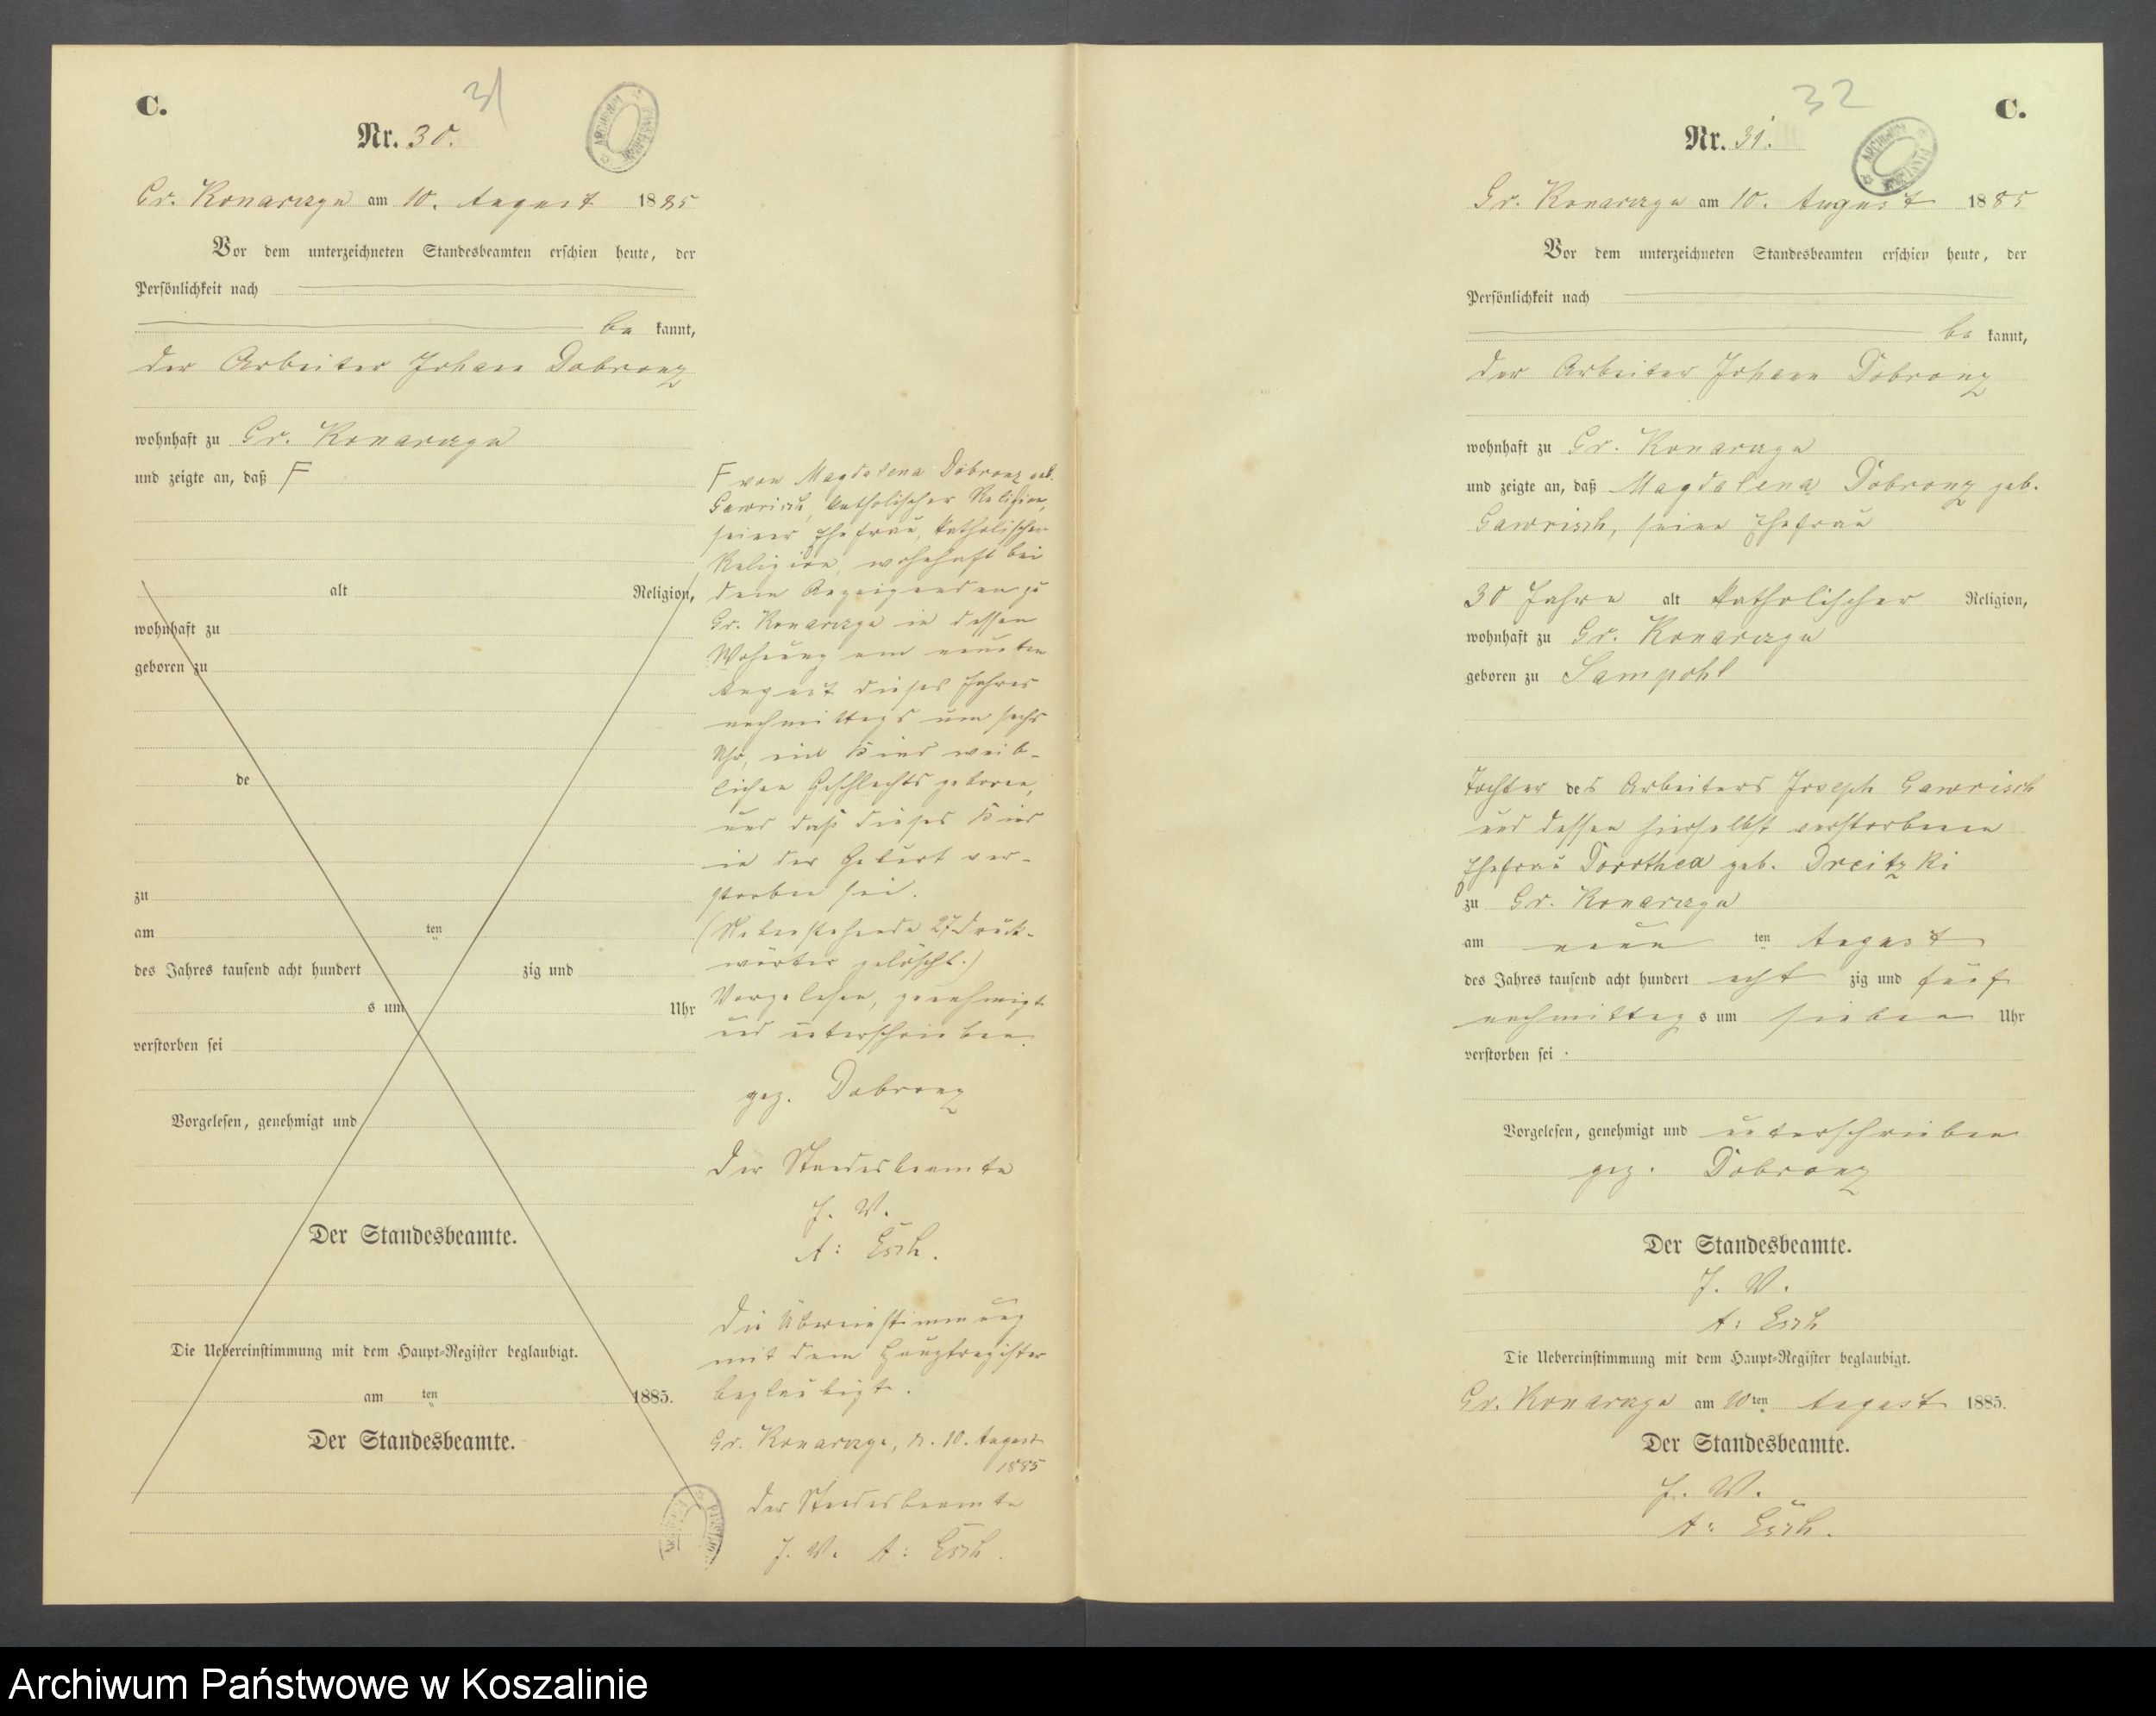 C.
31
Nr. 30.
Gr. Konarczyn am 10. August 1885
Vor dem unterzeichneten Standesbeamten erschien heute, der
Persönlichkeit nach
be kannt,
der Arbeiter Johann Dobronz
wohnhaft zu Gr. Konarczyn
und zeigte an, daß F
alt Religion,
wohnhaft zu
geboren zu
de
zu
am ten
des Jahres tausend acht hundert zig und
s um Uhr
verstorben sei
Vorgelesen, genehmigt und
Der Standesbeamte.
Die Uebereinstimmung mit dem Haupt-Register beglaubigt.
am ten 1885.
Der Standesbeamte.
F von Magdalena Dobronz geb.
Gawrisch, katholischer Religion,
seiner Ehefrau, katholischer
Religion, wohnhaft bei
dem Anzeigenden zu
Gr. Konarczyn in dessen
Wohnung am neunten
August dieses Jahres
nachmittags um sechs
Uhr, ein Kind weib-
lichen Geschlechts geboren,
und daß dieses Kind
in der Geburt ver-
storben sei.
(Nebenstehende 27 Druck-
wörter gelöscht.)
Vorgelesen, genehmigt
und unterschrieben.
gez. Dobronz
Der Standesbeamte
J. V.
A: Esch.
Die Übereinstimmung
mit dem Hauptregister
beglaubigt.
Gr. Konarczyn, d. 10. August
1885
Der Standesbeamte
J. V. A: Esch.
32
C.
Nr. 31.
Gr. Konarczyn am 10. August 1885
Vor dem unterzeichneten Standesbeamten erschien heute, der
Persönlichkeit nach
be kannt,
der Arbeiter Johann Dobronz
wohnhaft zu Gr. Konarczyn
und zeigte an, daß Magdalena Dobronz geb.
Gawrisch, seine Ehefrau
30 Jahre alt katholischer Religion,
wohnhaft zu Gr. Konarczyn
geboren zu Sampohl
Tochter des Arbeiters Joseph Gawrisch
und dessen hierselbst verstorbenen
Ehefrau Dorothea geb. Dreitzki
zu Gr. Konarczyn
am neun ten August
des Jahres tausend acht hundert acht zig und fünf
nachmittag s um sieben Uhr
verstorben sei.
Vorgelesen, genehmigt und unterschrieben
gez. Dobronz
Der Standesbeamte.
J. V.
A: Esch
Die Uebereinstimmung mit dem Haupt-Register beglaubigt.
Gr. Konarczyn am 10 ten August 1885.
Der Standesbeamte.
J. V.
A: Esch.
Archiwum Państwowe w Koszalinie